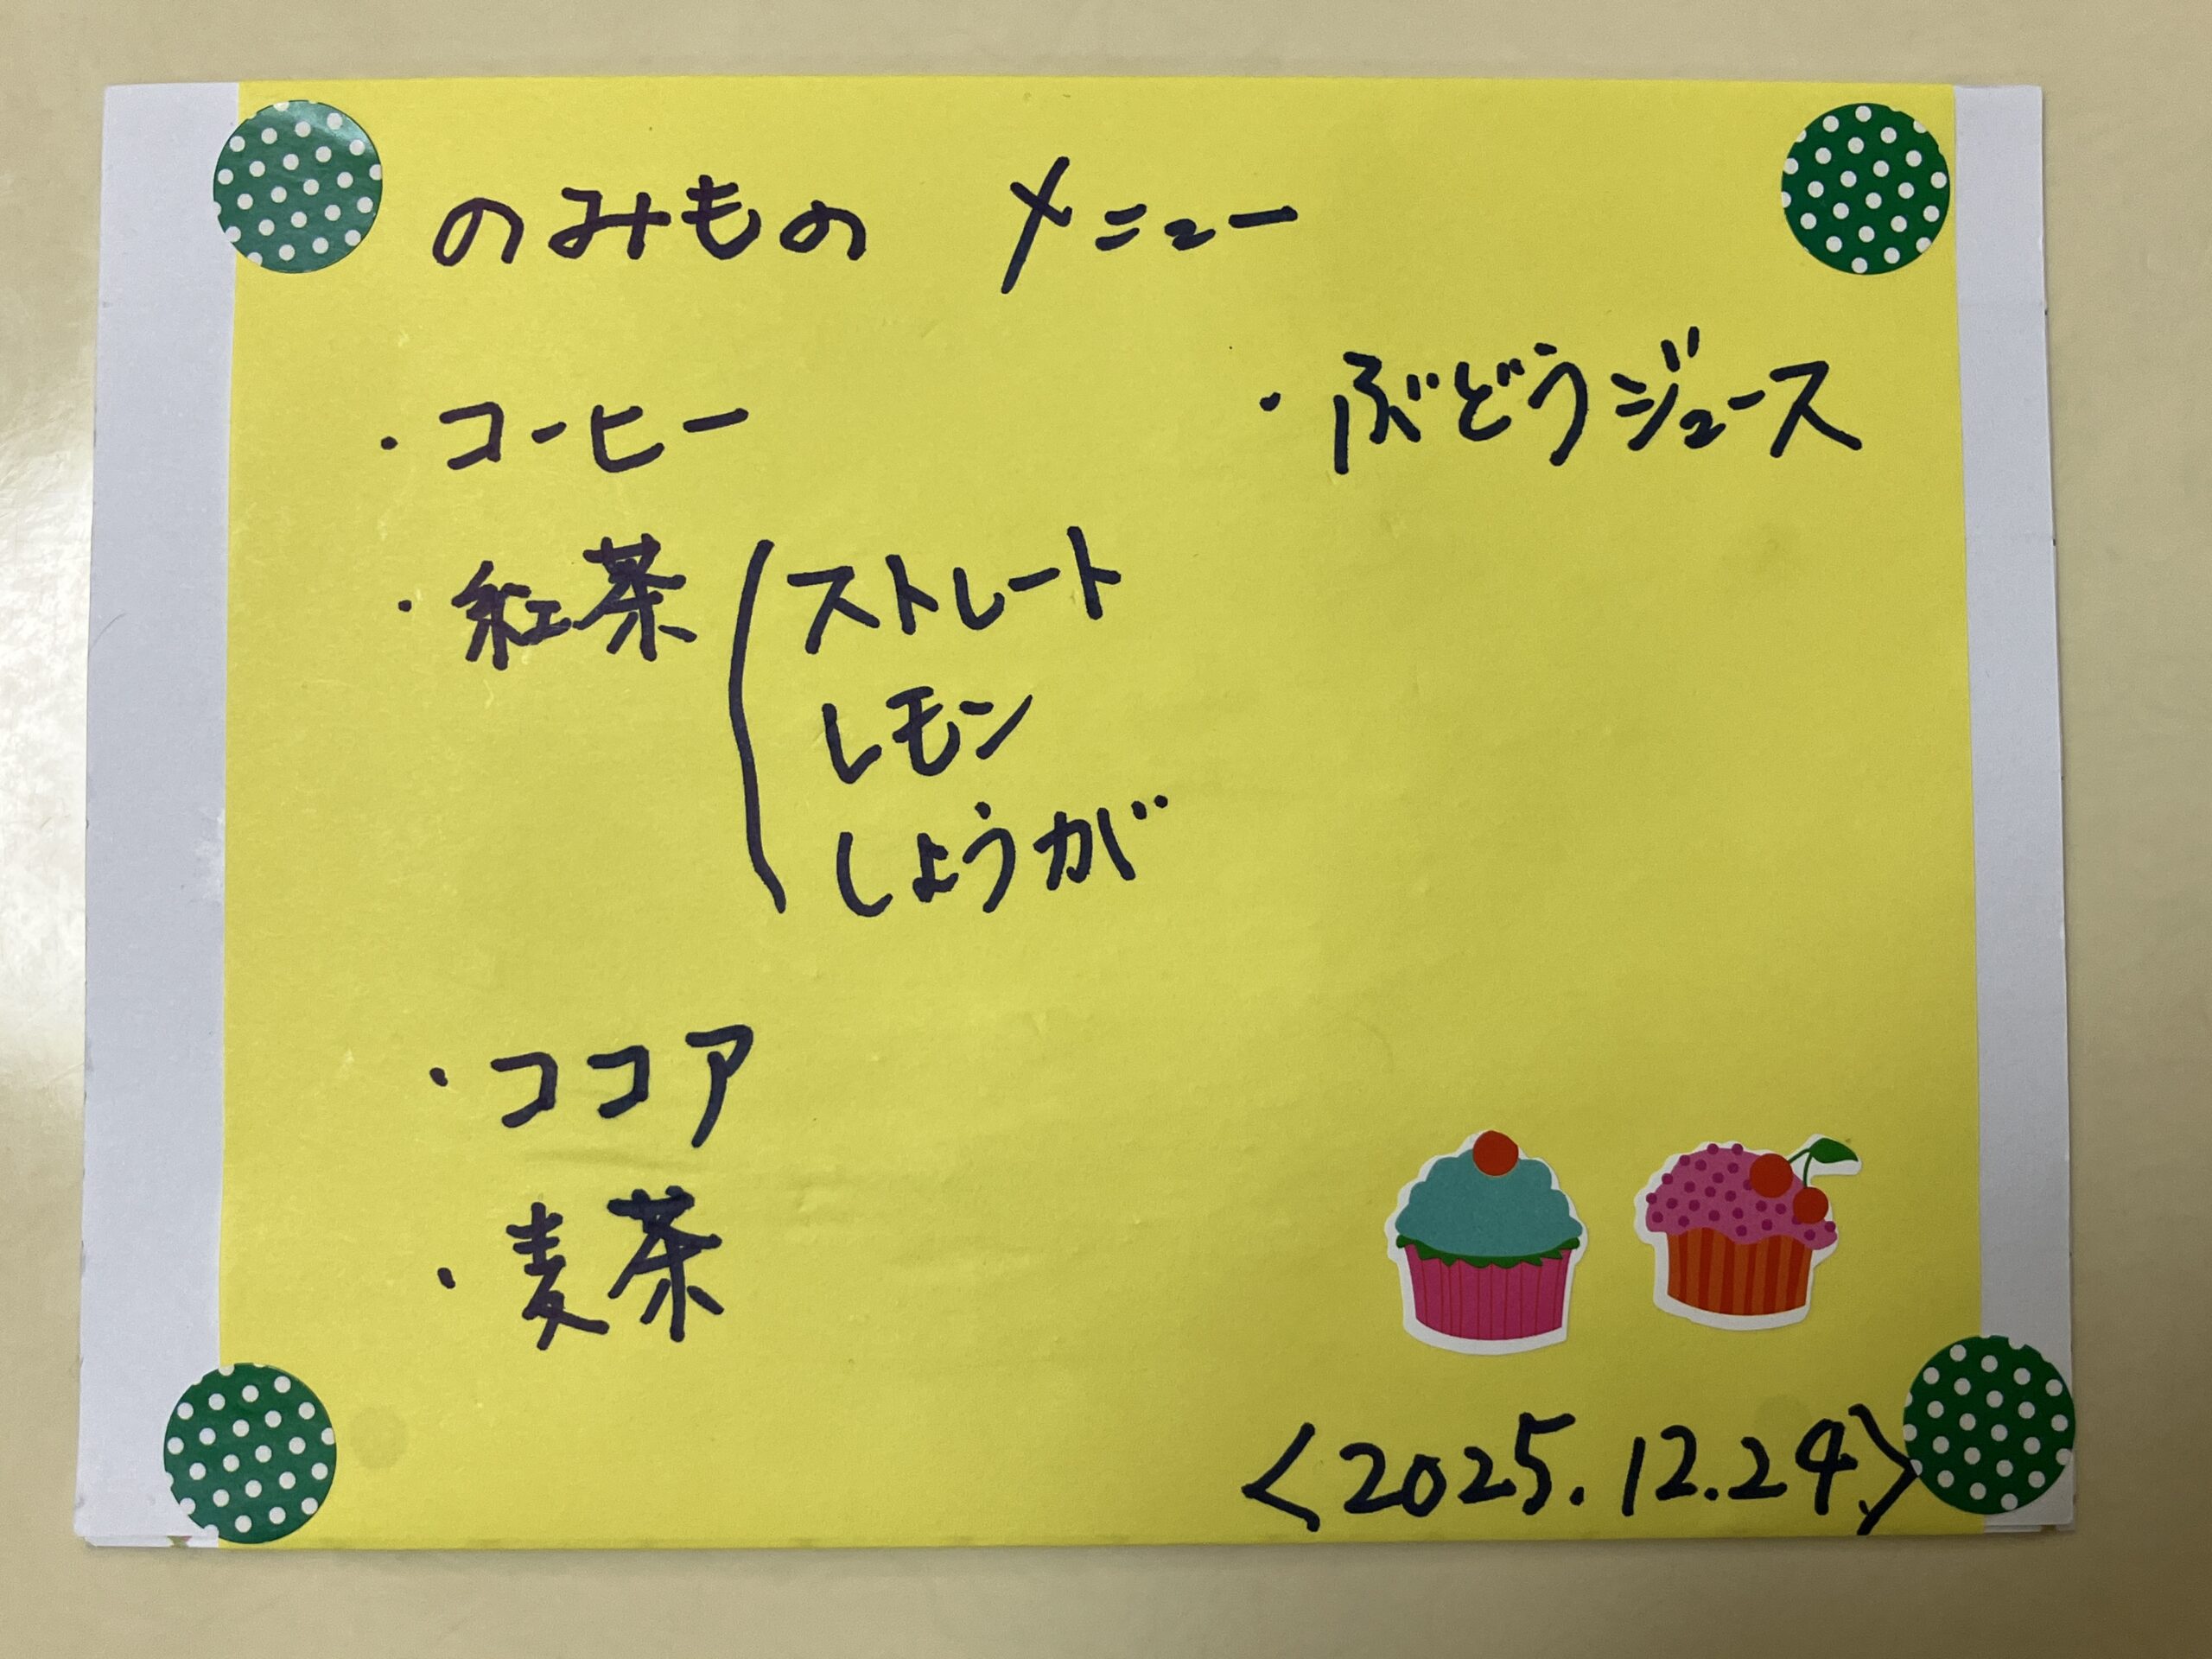 のみもの メニュー
・コーヒー
・紅茶 ( ストレート
レモン
しょうが
・ココア
・麦茶
・ぶどうジュース
<2025.12.24>